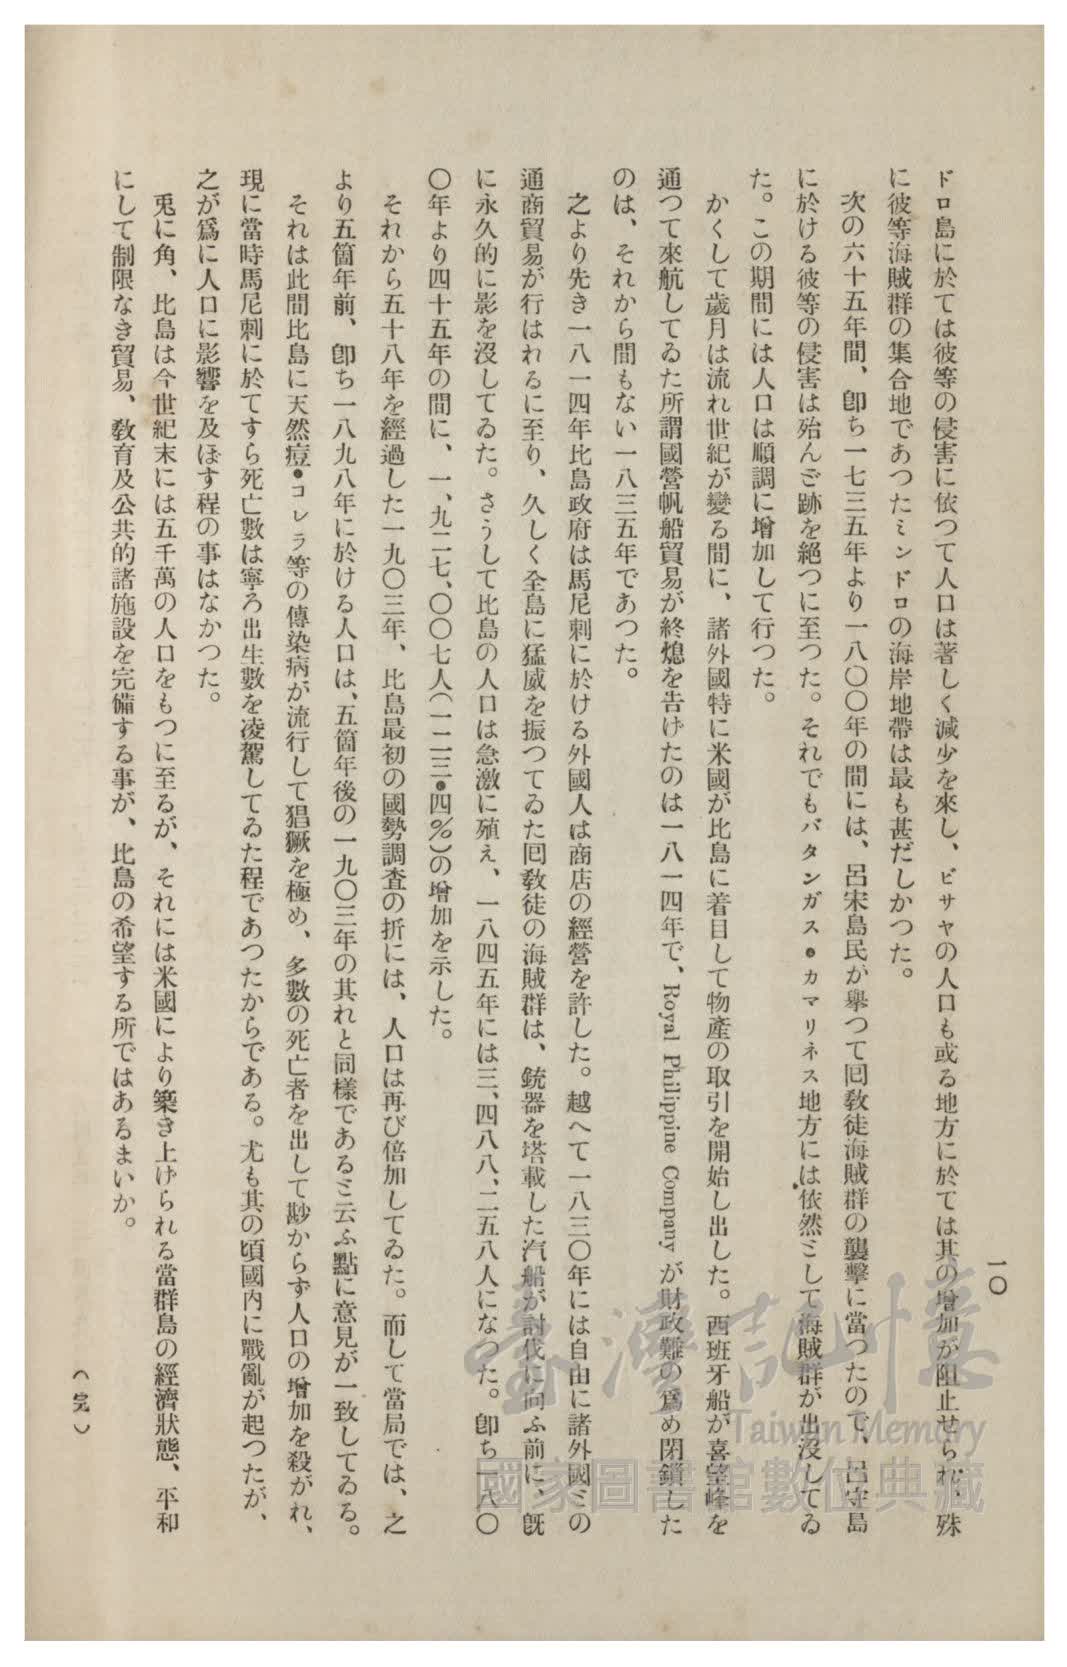 一〇
ドロ島に於ては彼等の侵害に依つて人口は著しく減少を來し、ビサヤの人口も或る地方に於ては其の増加が阻止せられ、殊
に彼等海賊群の集合地であつたミンドロの海岸地帶は最も甚だしかつた。
次の六十五年間、卽ち一七三五年より一八〇〇年の間には、呂宋島民が擧つて囘敎徒海賊群の襲擊に當つたので、呂宋島
に於ける彼等の侵害は殆んど跡を絕つに至つた。それでもバタンガス・カマリネス地方には依然として海賊群が出沒してゐ
た。この期間には人口は順調に增加して行つた。
かくして歲月は流れ世紀が變る間に、諸外國特に米國が比島に着目して物產の取引を開始し出した。西班牙船が喜望峰を
通つて來航してゐた所謂國營帆船貿易が終熄を告げたのは一八一四年で、Royal Philippine Company が財政難の爲め閉鎖した
のは、それから間もない一八三五年であつた。
之より先き一八一四年比島政府は馬尼剌に於ける外國人は商店の經營を許した。越へて一八三〇年には自由に諸外國との
通商貿易が行はれるに至り、久しく全島に猛威を振つてゐた囘敎徒の海賊群は、銃器を塔載した汽船が討伐に向ふ前に、旣
に永久的に影を沒してゐた。さうして比島の人口は急激に殖え、一八四五年には三、四八八、二五八人になつた。卽ち一八〇
〇年より四十五年の間に、一、九二七、〇〇七人(一二三・四%)の增加を示した。
それから五十八年を經過した一九〇三年、比島最初の國勢調査の折には、人口は再び倍加してゐた。而して當局では、之
より五箇年前、卽ち一八九八年に於ける人口は、五箇年後の一九〇三年の其れと同樣であると云ふ點に意見が一致してゐる。
それは此間比島に天然痘・コレラ等の傳染病が流行して猖獗を極め、多數の死亡者を出して尠からず人口の增加を殺がれ、
現に當時馬尼剌に於てすら死亡數は寧ろ出生數を凌駕してゐた程であつたからである。尤も其の頃國內に戰亂が起つたが、
之が爲に人口に影響を及ぼす程の事はなかつた。
兎に角、比島は今世紀末には五千萬の人口をもつに至るが、それには米國により築き上げられる當群島の經濟狀態、平和
にして制限なき貿易、敎育及公共的諸施設を完備する事が、比島の希望する所ではあるまいか。
(完)
臺灣記憶
Taiwan Memory
國家圖書館數位典藏